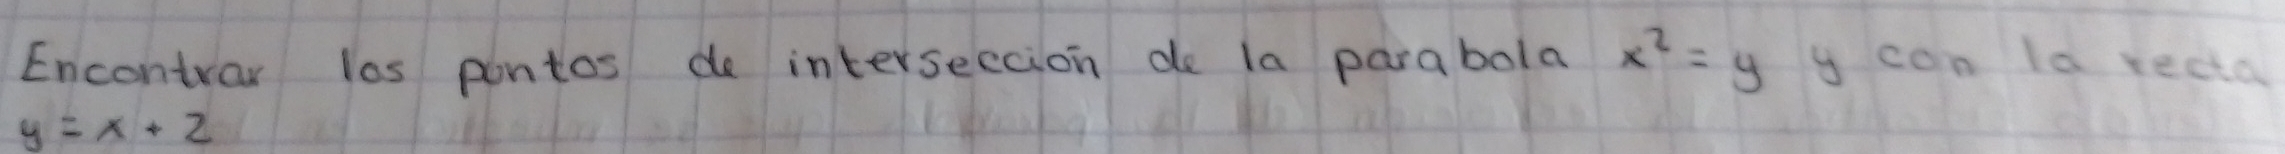 Encontrar los puntos de intersección de la parabola x² = y y con la recta
y = x + 2